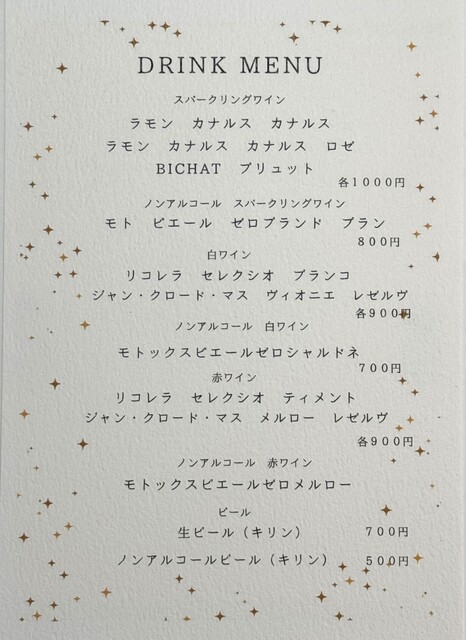 DRINK MENU
スパークリングワイン
ラモン　カナルス　カナルス
ラモン　カナルス　カナルス　ロゼ
BICHAT　ブリュット
各1000円
ノンアルコール　スパークリングワイン
モト　ピエール　ゼロブランド　ブラン
800円
白ワイン
リコレラ　セレクシオ　ブランコ
ジャン・クロード・マス　ヴィオニエ　レゼルヴ
各900円
ノンアルコール　白ワイン
モトックスピエールゼロシャルドネ
700円
赤ワイン
リコレラ　セレクシオ　ティメント
ジャン・クロード・マス　メルロー　レゼルヴ
各900円
ノンアルコール　赤ワイン
モトックスピエールゼロメルロー
ビール
生ビール（キリン）　700円
ノンアルコールビール（キリン）　500円